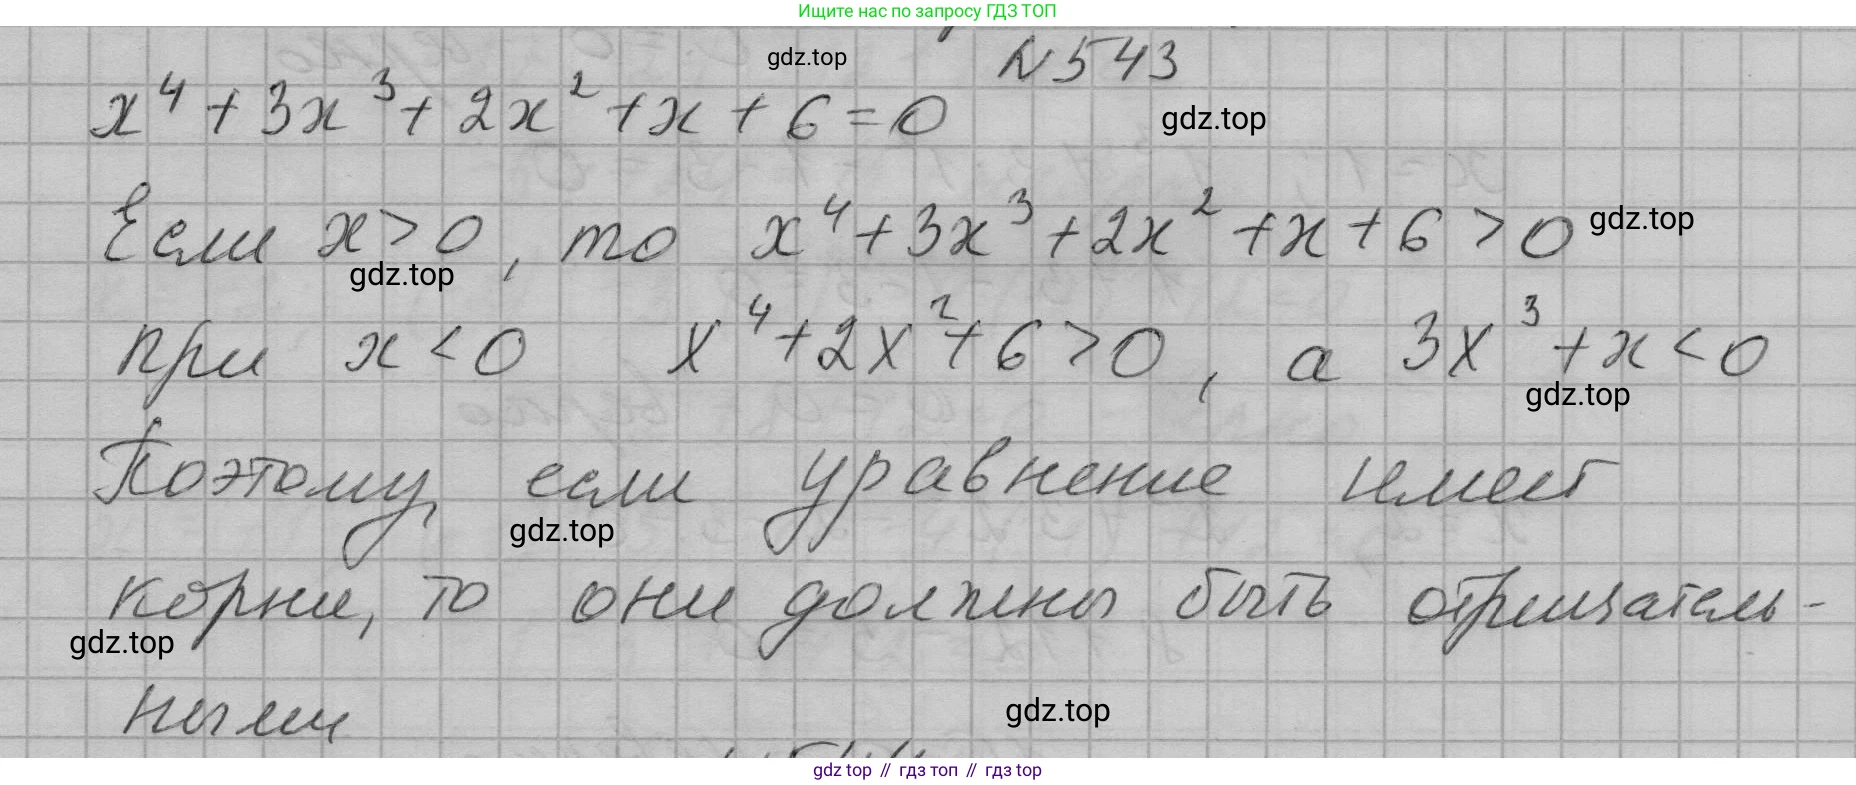 Ищите нас по запросу ГДЗ ТОП
gdz.top
№543
x⁴ + 3x³ + 2x² + x + 6 = 0
gdz.top
Если x > 0, то x⁴ + 3x³ + 2x² + x + 6 > 0
gdz.top
gdz.top
при x < 0 x⁴ + 2x² + 6 > 0, а 3x³ + x < 0
gdz.top
Поэтому, если уравнение имеет
gdz.top
корни, то они должны быть отрицатель-
gdz.top
ными
gdz.top
gdz top // гдз топ // гдз top